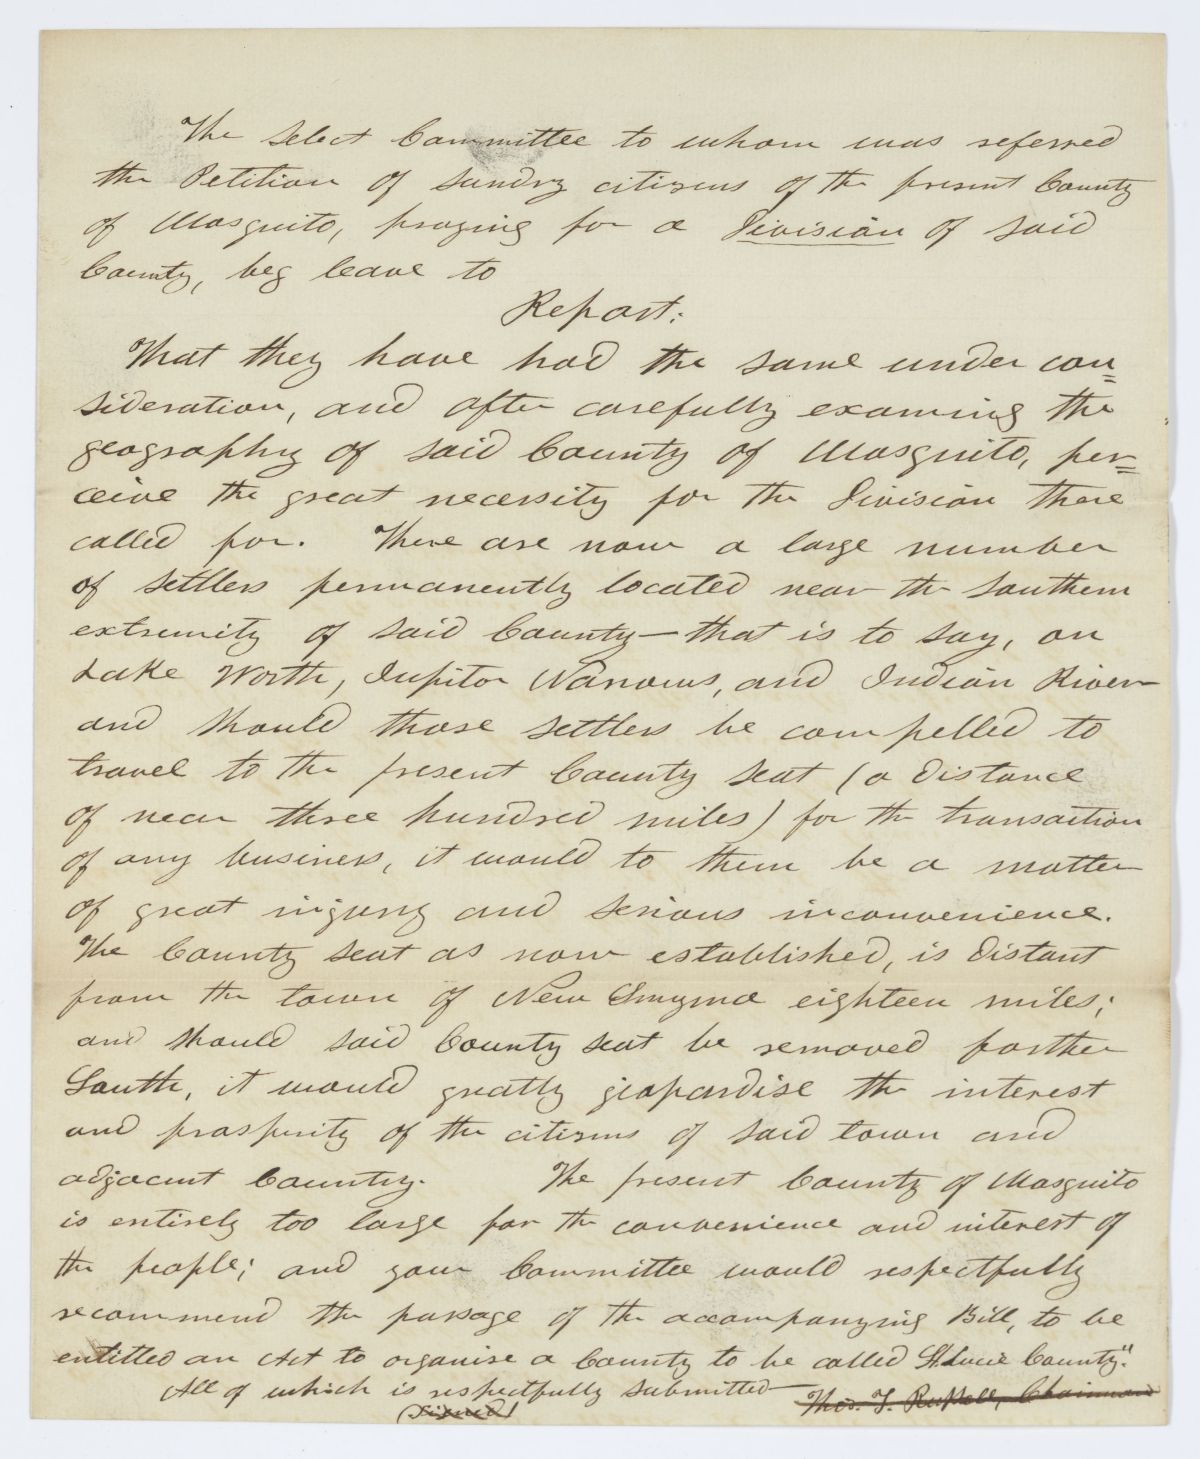 The Select Committee to whom was referred
the Petition of sundry citizens of the present County
of Mosquito, praying for a Division of said
County, beg leave to
Report:
That they have had the same under con=
sideration, and after carefully examing the
geography of said County of Mosquito, per=
ceive the great necessity for the Division there
called for. There are now a large number
of settlers permanently located near the Southern
extremity of said County—that is to say, on
Lake Worth, Jupitor Narrows, and Indian River
and should those settlers be compelled to
travel to the present County seat (a distance
of near three hundred miles) for the transaction
of any business, it would to them be a matter
of great injury and serious inconvenience.
The County seat as now established, is distant
from the town of New Smyrna eighteen miles;
and should said County seat be removed farther
South, it would greatly jeopardise the interest
and prosperity of the citizens of said town and
adjacent Country. The present County of Mosquito
is entirely too large for the convenience and interest of
the people; and your Committee would respectfully
recommend the passage of the accompanying Bill, to be
entitled an Act to organise a County to be called St. Lucie County."
All of which is respectfully submitted—
(Signed) Thos. T. Russell, Chairman